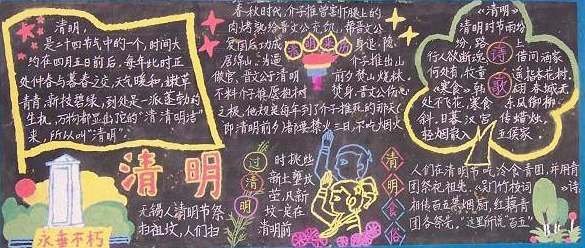 清明,
是二十四节气中的一个,时间大
约在四月五日前后。每年此时正
处仲春与暮春之交,天气暖和,嫩草
青青,新枝碧绿,到处是一派蓬勃的
生机,万物都显出花的“清清明洁”
来,所以叫“清明”。
春秋时代,介子推曾割腿上的
肉烤熟给晋文公充饥,帮晋文公
复国后功成身退,隐
居绵山。当
清明来历
介子推出山
做官,晋文公于清明前夕焚山烧林
不料介子推愿抱树焚身。晋文公伤心
之极,他规定每年到了介子推死的那天(
即清明前夕)诸侯要禁火三日,不吃烟火
《清明》
清明时节雨纷
纷,路上
行人欲断魂。借问酒家
何处有,牧童遥指杏花村。
《寒食》韩
春城无
处不飞花,寒食东风御柳
斜。日暮汉宫传蜡烛,
轻烟散入五侯家。
诗歌
清明
永垂不朽
无锡人清明节祭
扫祖坟,人们扫
过清明
时挑些
新土壅坟
茔,凡新
坟一定在
清明前
清明食俗
人们在清明节吃冷食青团,并用青
团祭祀祖先。《吴门竹枝词》诗
相传百五禁烟厨,红藕青
团各祭先。”这里所说“百五”